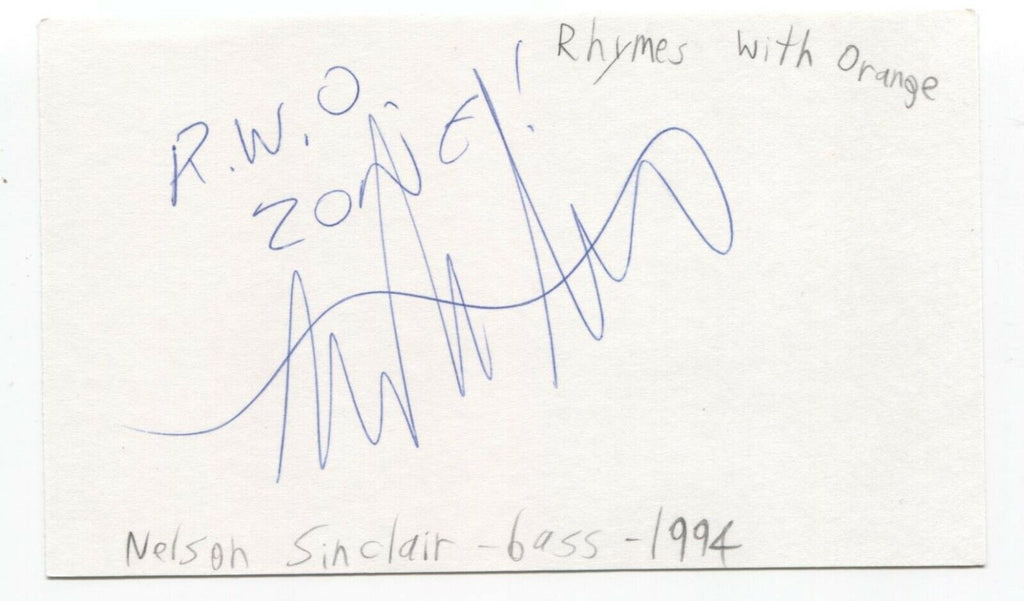 Rhymes with Orange
R.W.O.
ZONE!
Nelson Sinclair - bass - 1994